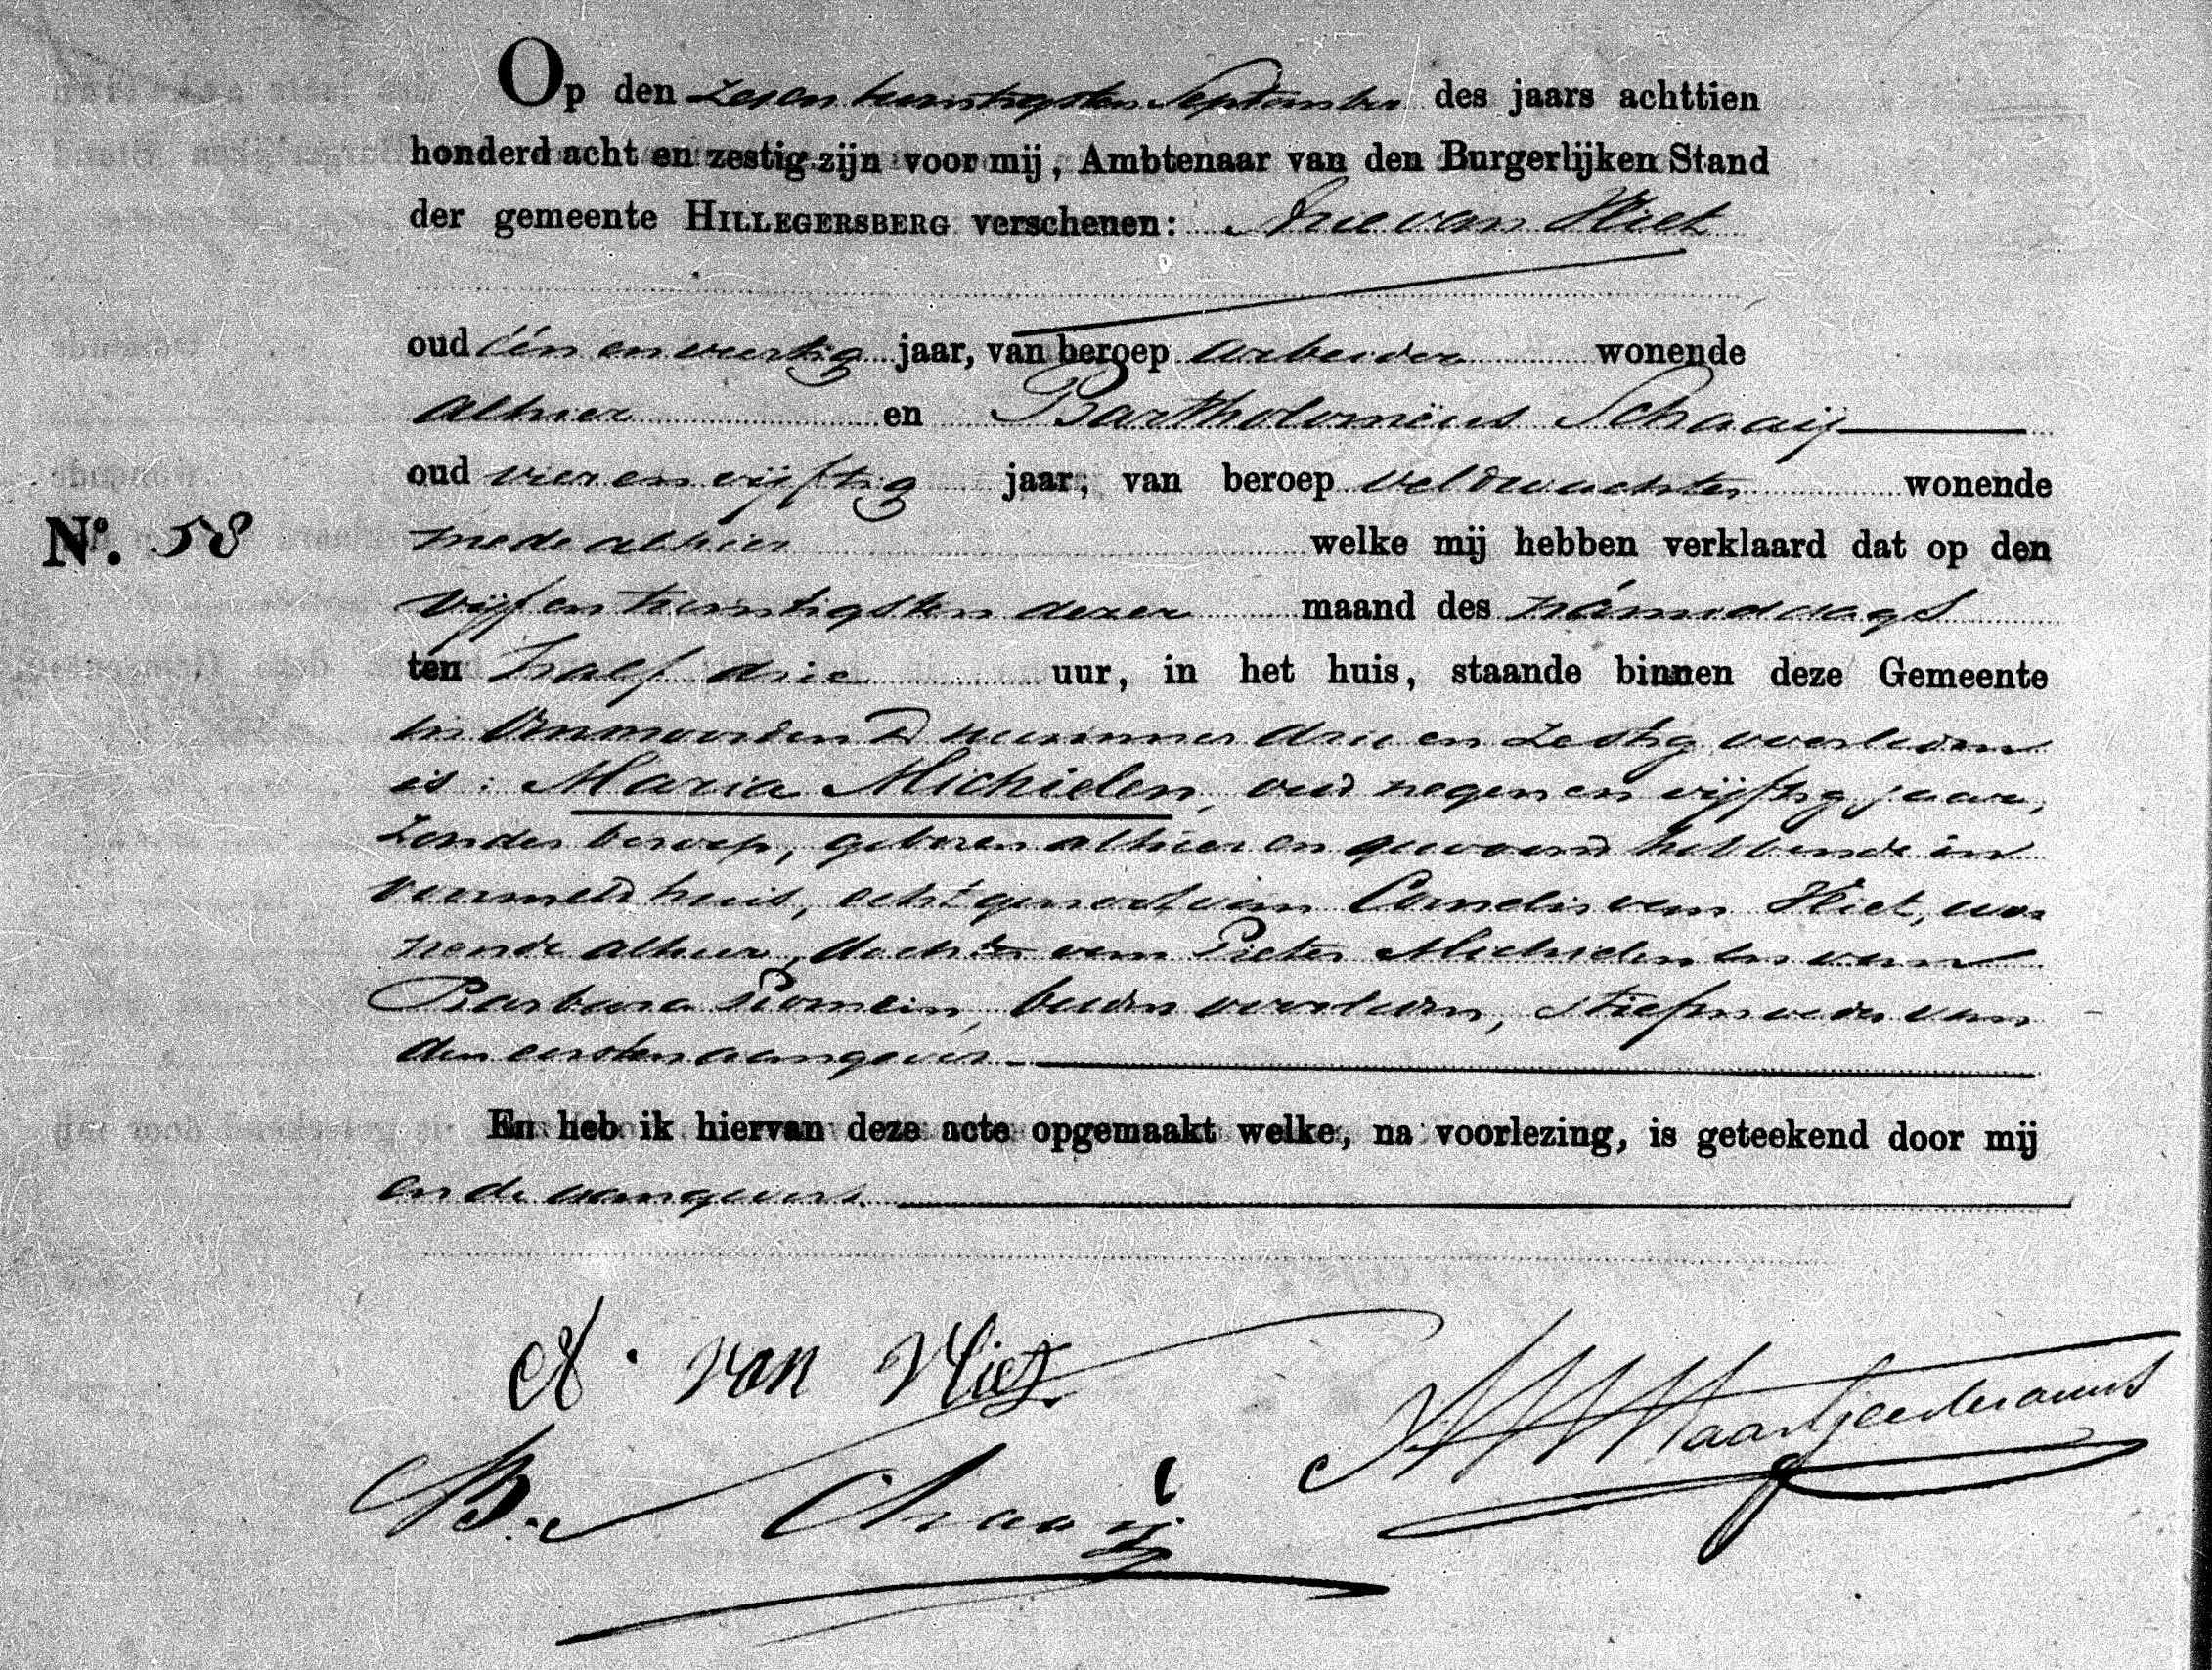 Op den Zesen twintigsten September des jaars achttien
honderd acht en zestig zijn voor mij, Ambtenaar van den Burgerlijken Stand
der gemeente HILLEGERSBERG verschenen: Arie van Vliet
oud één en veertig jaar, van beroep arbeider wonende
alhier en Bartholomeus Schaaij
oud vier en vijftig jaar, van beroep veldwachter wonende
No. 58 mede alhier welke mij hebben verklaard dat op den
vijf en twintigsten dezer maand des námiddags
ten half drie uur, in het huis, staande binnen deze Gemeente
in Ommoorden D nummer drie en zestig overleden
is: Maria Michielen, oud negen en vijftig jaar,
zonder beroep, geboren alhier en gewoond hebbende in
voormeld huis, echtgenoot van Cornelis van Vliet, wo
nende alhier, dochter van Pieter Michielen en van
Barbara Romein, beiden overleden, stiefmoeder van
den eersten aangever
En heb ik hiervan deze acte opgemaakt welke, na voorlezing, is geteekend door mij
en de aangevers.
A. van Vliet
B. Schaaij